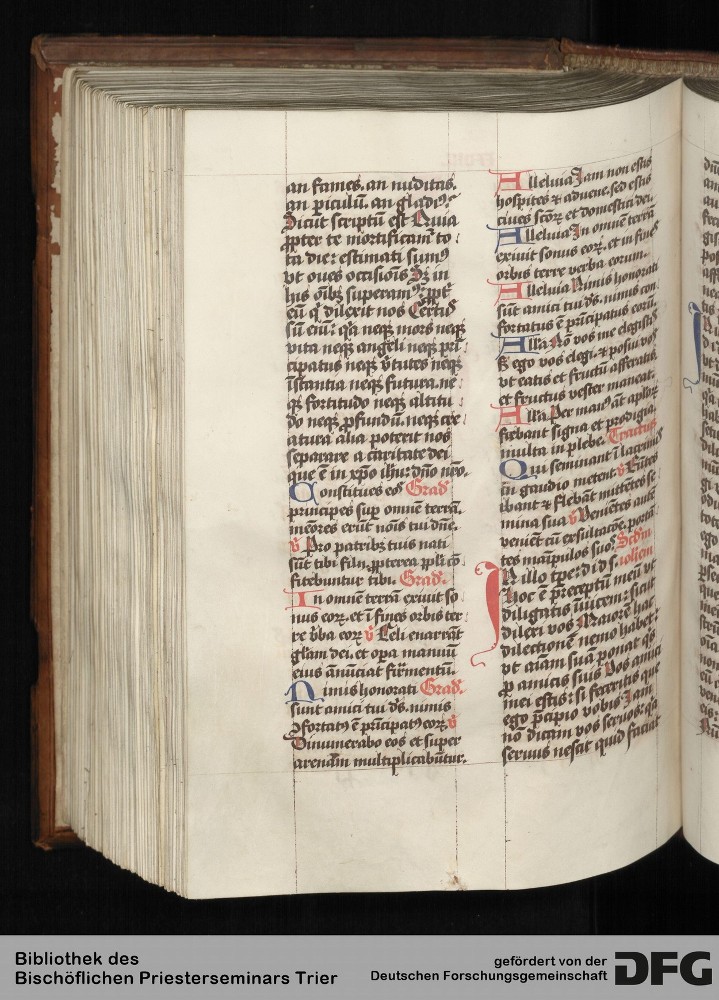 an fames. an nuditas.
an piculū. an gladiꝰ.
Sicut scriptū est Quia
ꝓpter te mortificam᷑ to
ta die: estimati sumꝰ
vt oues occisiōis Sꝫ in
his oībꝫ superamꝰ: ꝓpt᷑
eū q̇ dilexit nos Certꝰ
sū eni͛: qꝛ neqꝫ mors neqꝫ
vita neqꝫ angeli neqꝫ prī
cipatus neqꝫ v͛tutes neqꝫ
īstantia neqꝫ futura. ne
qꝫ fortitudo neqꝫ altitu
do neqꝫ ꝓfundū. neqꝫ cre
atura alia poterit nos
separare a caritate dei
que ē in xp̄o ih̄u: dn̄o nr̄o.
Constitues eos Grad᷑
principes suꝑ omnem terrā.
memores erūt nōis tui dn̄e.
v᷑ Pro patribꝫ tuis nati
sūt tibi filii. ꝓpterea ppli cō
fitebuntur tibi. Grad᷑.
In omnē terrā exiuit so
nus eoꝝ. et ī fines orbis ter
re v͛ba eoꝝ v᷑ Celi enarrāt
glām dei. et oꝑa manuū
eius ānūciat firmentū.
Nimis honorati Grad᷑.
sunt amici tui ds̄. nimis
ꝯfortatꝰ ē prīcipatꝰ eoꝝ. v᷑
Dinumerabo eos et super
arenam multiplicabūtur.
Alleluia Iam non estis
hospites ⁊ aduene. sed estis
ciues scōꝝ et domestici dei.
Alleluia In omnē terrā
exiuit sonus eoꝝ. et in fines
orbis terre verba eorum.
Alleluia Nimis honorati
sūt amici tui ds̄. nimis con
fortatus ē prīcipatus eorū.
Alla Nō vos me elegistis
sꝫ ego vos elegi. ⁊ posui vos
vt eatis et fructū afferatis.
et fructus vester maneat.
Alla Per manꝰ āt aplōꝝ
fiebant signa et prodigia.
multa in plebe. Tractus
Qui seminant ī lacrimis
in gaudio metent v᷑ Eūtes
ibant ⁊ flebāt mittētes se
mina sua v᷑ Venientes aute᷑
venient cū exsultatōe. portā
tes maīpulos suos. Scd̄m
In illo tp̄e: di᷑ ds̄. ioħem
Hoc ē preceptū meū vt
diligatis iuicem: sicut
dilexi vos Maiorē hac
dilectionē nemo habet:
vt aīam suā ponat qꝭs
ꝓ amicis suis Vos amici
mei estis: si feceritis que
ego p̄cipio vobis Iam
nō dicam vos seruos: qꝛ
seruus nescit quid faciat
Bibliothek des
Bischöflichen Priesterseminars Trier
gefördert von der
Deutschen Forschungsgemeinschaft
DFG